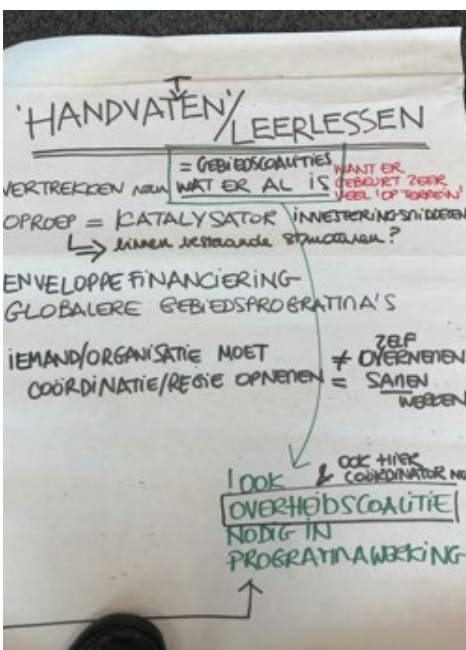 'HANDVATEN'/LEERLESSEN
T
= GEBiEDSCOALiTiES
VERTREKKEN van WAT ER AL iS
WANT ER
GEBEURT ZEER
VEEL 'OP TERREIN'
OPROEP = KATALYSATOR iNVESTERiNGSMiDDELEN
binnen bestaande structuren?
ENVELOPPE FiNANCiERiNG
GLOBALERE GEBiEDSPROGRAMMA'S
iEMAND/ORGANiSATiE MOET
COÖRDiNATiE/REGiE OPNEMEN
≠ ZELF
OVERNEMEN
= SAMEN
WERKEN
! OOK
& OOK HiER
COÖRDiNATOR
OVERHEiDSCOALiTiE
NODiG iN
PROGRAMMAWERKiNG